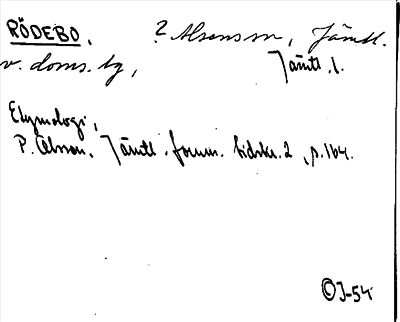 RÖDEBO. ? Alsens sn, Jämtl.
v. doms. bg, Jämtl. l.
Etymologi,
P. Olsson. Jämtl. fornm. tidskr. 2, p. 164.
OJ-54